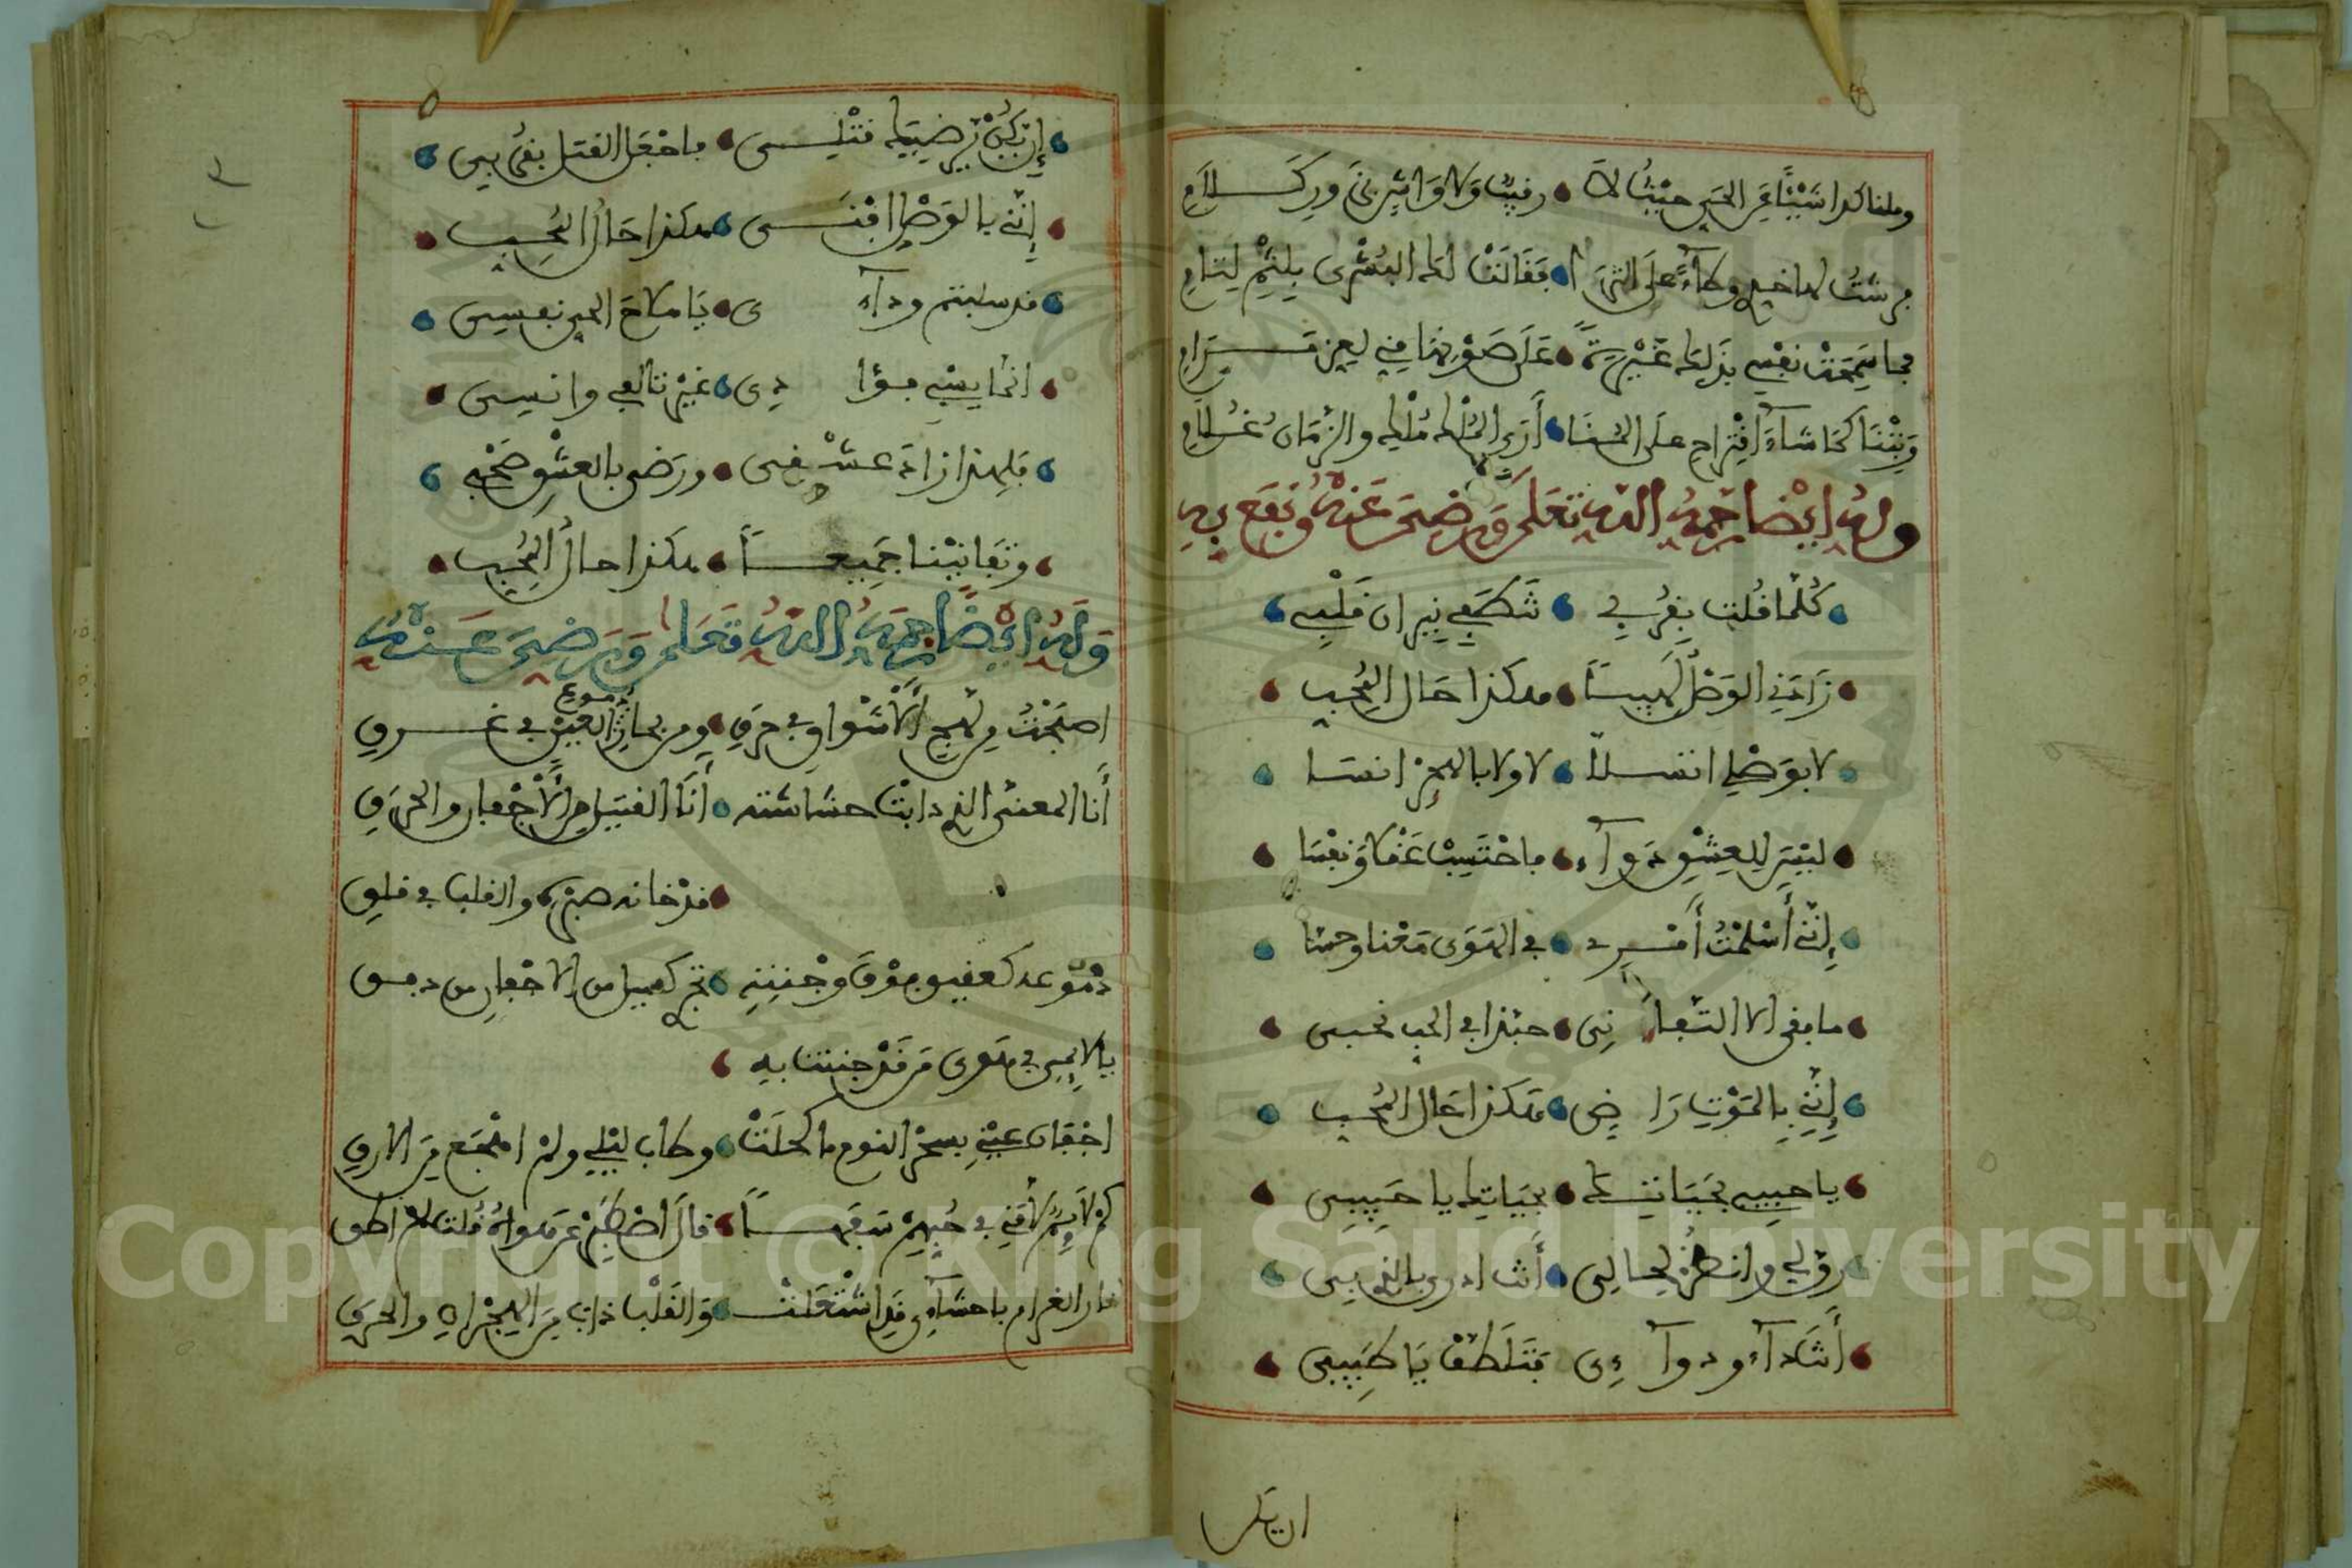 وملنا كذا شيئا عن الحي حيث لا رقيب ولا واش بزور كلام
فرشت لها خدي وطاء على الثرى فقالت لك البشرى بلثم لثام
فما سمحت نفسي بذلك غيرة على صونها مني لعز مرام
وبتنا كما شاء اقتراحي على المنى أرى الملك ملكي والزمان غلام
وله ايضا رحمه الله تعلى ورضي عنه ونفع به
كلما قلت بقربي تنطفي نيران قلبي
زادني الوصل لهيبا هكذا حال المحب
لا بوصلي اتسلا لا ولا بالهجر انسا
ليس للعشق دواء فاحتسب عقلا ونفسا
إنني أسلمت أمري في الهوى معنا وحسا
ما بقى الا التفاني حبذا في الحب نحبى
إنني بالموت راضي هكذا حال المحب
يا حبيبي بحياتك بحياتك يا حبيبى
رق لي وانظر لحالي أنت ادرى بالذي بى
أنت دآء ودوآءى فتلطف يا طبيبى
ان يكن
إن يكن يرضيك قتلى فاجعل القتل بقربى
إنني بالوصل افنى هكذا حال المحب
قد سلبتم ودآءى يا ملاح الحي نفسى
انما يبغي فؤادى غير تالفي وانسى
فلهذا زاد عشقى ورضى بالعشق صحبي
وتفانينا جميعا هكذا حال المحب
وله ايضا رحمه الله تعلى ورضي عنه
اصبحت من لهج الأشواق في حرق ومن بحار دموع العين في غرق
أنا المعنى الذي ذابت حشاشته أنا القتيل من الأجفان والحرق
قد خانه صبره والقلب في قلق
دموعه كعقيق فوق وجنته تجري كسيل من الاجفان من دفق
يا لايمي في هوى من قد جننت به
اجفان عيني بسحر النوم ما كحلت وطاب ليلي ولم اهجع من الارق
كم لايم لامني في حبهم سفها قال اصطبر عن هواه قلت لم اطق
نار الغرام باحشآءى قد اشتعلت والقلب ذاب من الهجران والحرق
Copyright © King Saud University